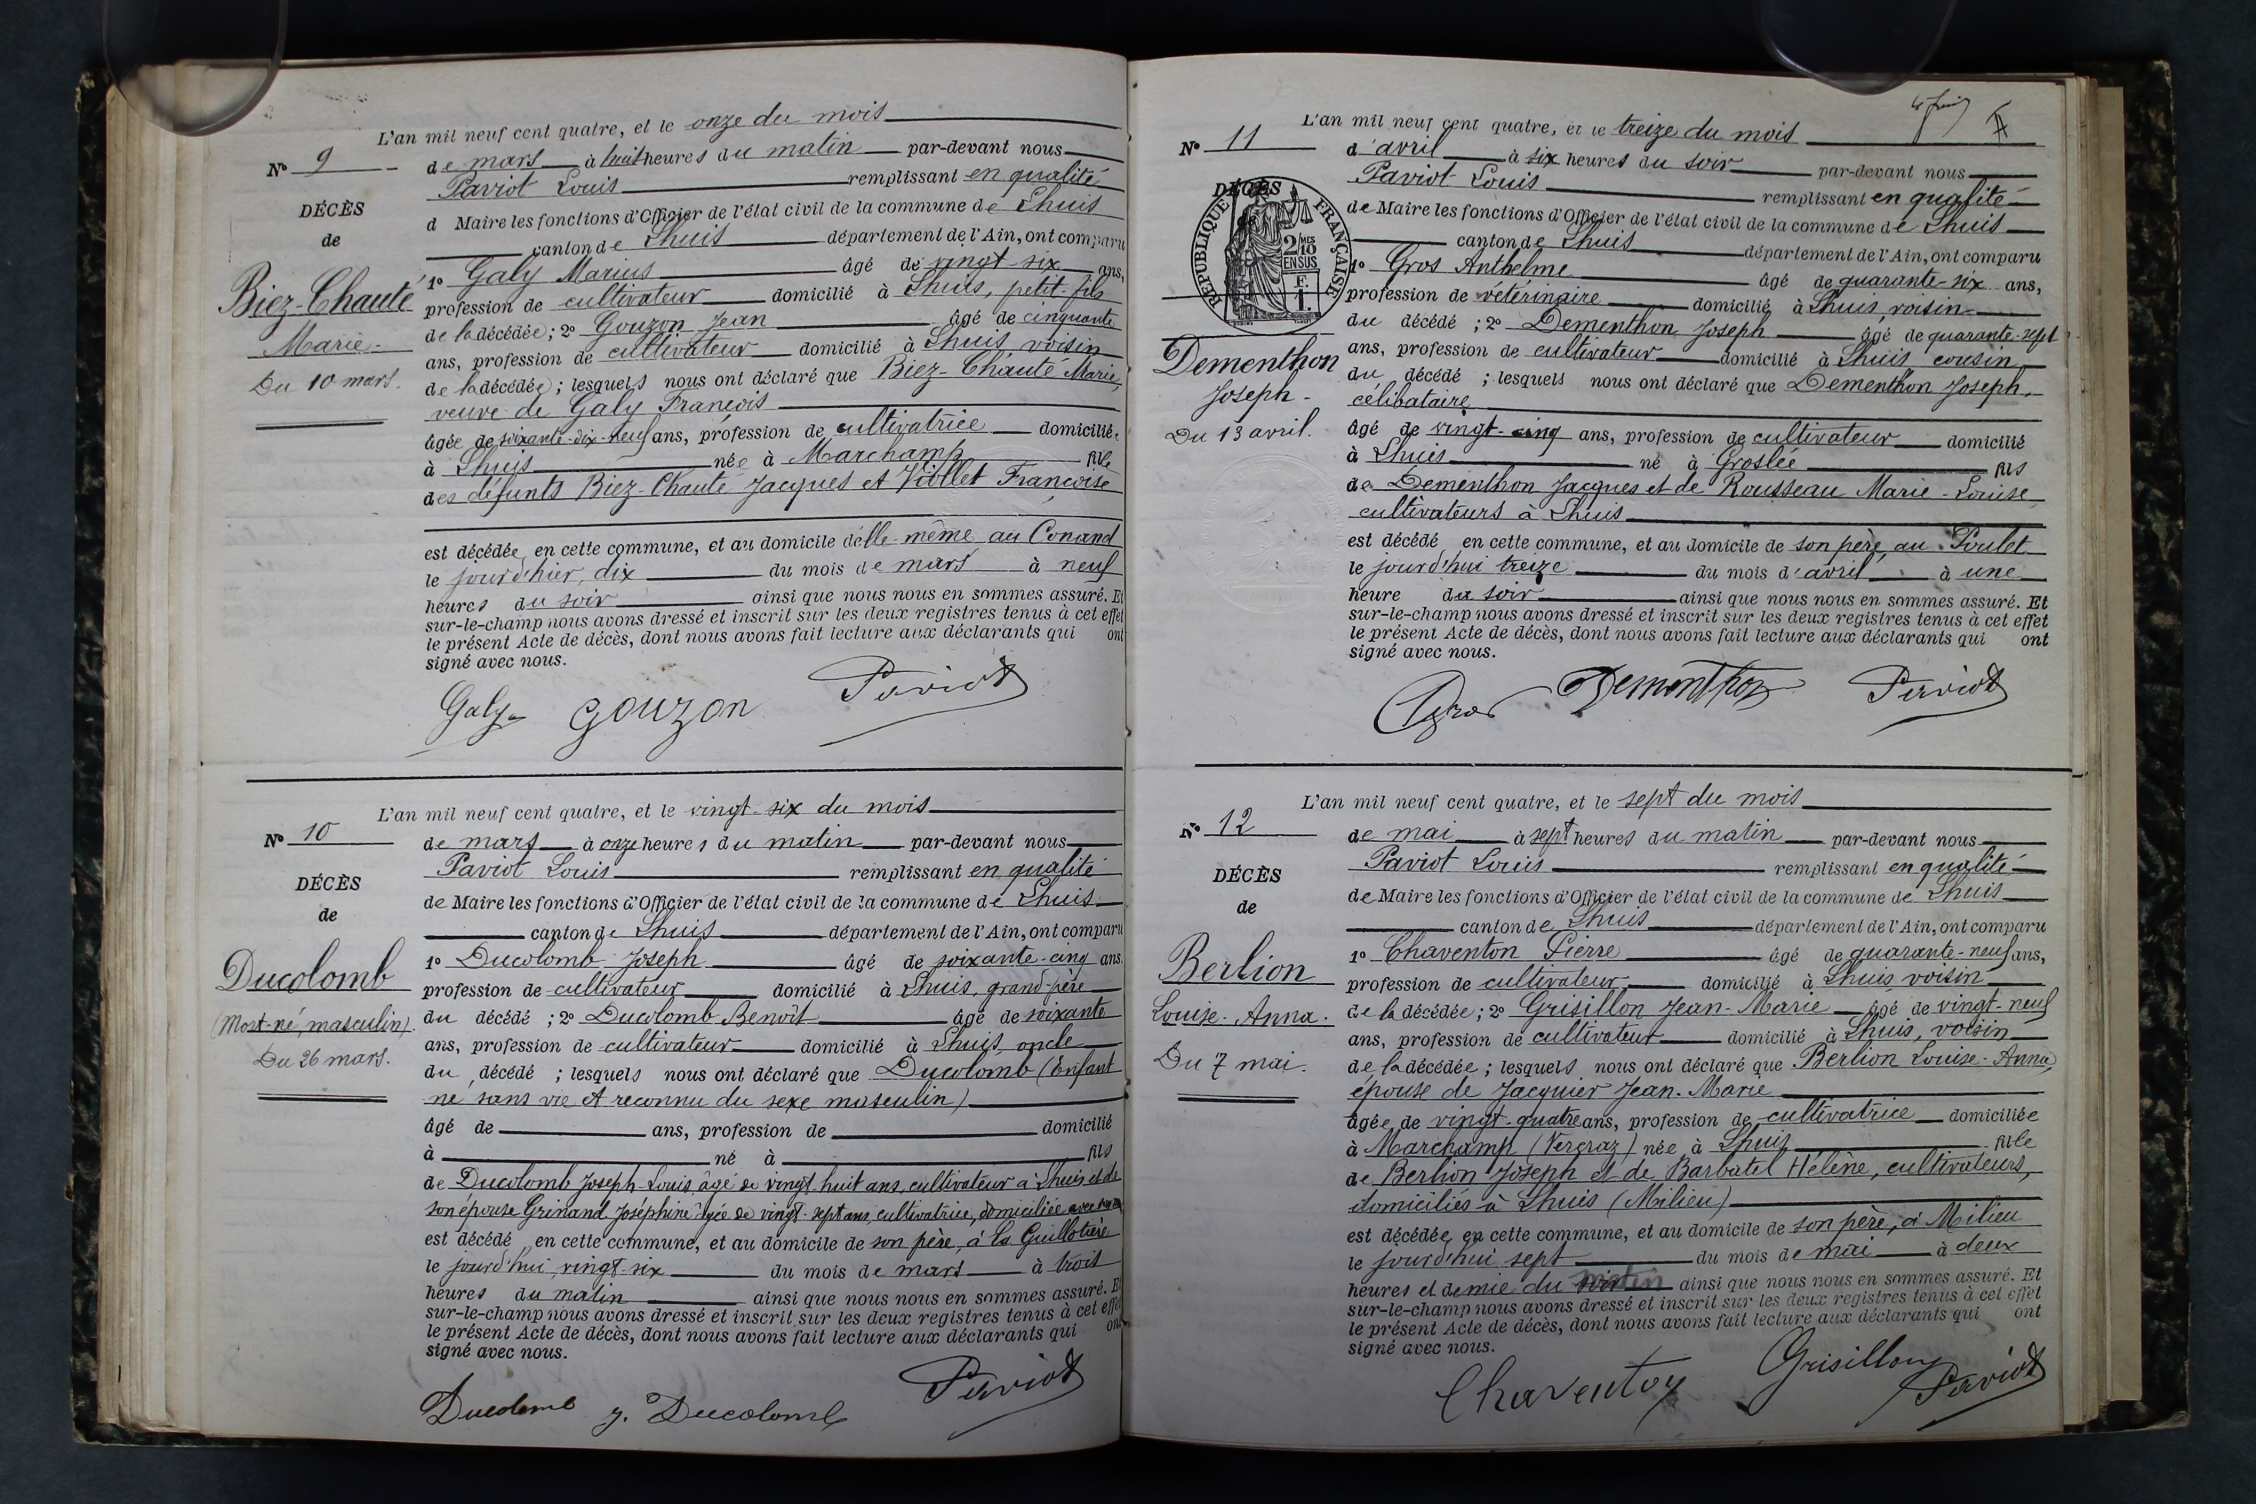 L'an mil neuf cent quatre, et le onze du mois
N° 9
de mars à huit heures du matin par-devant nous
Paviot Louis remplissant en qualité
d Maire les fonctions d'Officier de l'état civil de la commune de Lhuis
canton de Lhuis département de l'Ain, ont comparu
1° Galy Marius âgé de vingt-six ans,
profession de cultivateur domicilié à Lhuis, petit-fils
de la décédée; 2° Gouzon Jean âgé de cinquante
ans, profession de cultivateur domicilié à Lhuis, voisin
de la décédée; lesquels nous ont déclaré que Biez-Chauté Marie,
veuve de Galy François
âgée de soixante-dix-neuf ans, profession de cultivatrice domiciliée
à Lhuis née à Marchamp fille
des défunts Biez-Chauté Jacques et Viollet Françoise
est décédée en cette commune, et au domicile d'elle-même au Conand
le jour d'hier, dix du mois de mars à neuf
heures du soir ainsi que nous nous en sommes assuré. Et
sur-le-champ nous avons dressé et inscrit sur les deux registres tenus à cet effet
le présent Acte de décès, dont nous avons fait lecture aux déclarants qui ont
signé avec nous.
DÉCÈS
de
Biez-Chauté
Marie-
Du 10 mars.
Galy Gouzon Paviot
L'an mil neuf cent quatre, et le vingt-six du mois
N° 10
de mars à onze heures du matin par-devant nous
Paviot Louis remplissant en qualité
de Maire les fonctions d'Officier de l'état civil de la commune de Lhuis
canton de Lhuis département de l'Ain, ont comparu
1° Ducolomb Joseph âgé de soixante-cinq ans,
profession de cultivateur domicilié à Lhuis, grand-père
du décédé; 2° Ducolomb Benoît âgé de soixante
ans, profession de cultivateur domicilié à Lhuis, oncle
du décédé; lesquels nous ont déclaré que Ducolomb (Enfant
né sans vie et reconnu du sexe masculin)
âgé de ans, profession de domicilié
à né à fils
de Ducolomb Joseph-Louis, âgé de vingt huit ans, cultivateur à Lhuis et de
son épouse Grinand Joséphine âgée de vingt-sept ans, cultivatrice, domiciliée avec
est décédé en cette commune, et au domicile de son père, à la Guillotière
le jourd'hui, vingt-six du mois de mars à trois
heures du matin ainsi que nous nous en sommes assuré. Et
sur-le-champ nous avons dressé et inscrit sur les deux registres tenus à cet effet
le présent Acte de décès, dont nous avons fait lecture aux déclarants qui ont
signé avec nous.
DÉCÈS
de
Ducolomb
(Mort-né, masculin).
Du 26 mars.
Ducolomb J. Ducolomb Paviot
L'an mil neuf cent quatre, et le treize du mois
N° 11
d'avril à six heures du soir par-devant nous
Paviot Louis remplissant en qualité
de Maire les fonctions d'Officier de l'état civil de la commune de Lhuis
canton de Lhuis département de l'Ain, ont comparu
1° Gros Anthelme âgé de quarante-six ans,
profession de vétérinaire domicilié à Lhuis, voisin
du décédé; 2° Dementhon Joseph âgé de quarante-sept
ans, profession de cultivateur domicilié à Lhuis, cousin
du décédé; lesquels nous ont déclaré que Dementhon Joseph,
célibataire
âgé de vingt-cinq ans, profession de cultivateur domicilié
à Lhuis né à Groslée fils
de Dementhon Jacques et de Rousseau Marie-Louise
cultivateurs à Lhuis
est décédé en cette commune, et au domicile de son père, au Poulet
le jourd'hui treize du mois d'avril à une
heure du soir ainsi que nous nous en sommes assuré. Et
sur-le-champ nous avons dressé et inscrit sur les deux registres tenus à cet effet
le présent Acte de décès, dont nous avons fait lecture aux déclarants qui ont
signé avec nous.
DÉCÈS
RÉPUBLIQUE FRANÇAISE
2/10
MES
EN SUS
F.
1
Dementhon
Joseph-
Du 13 avril.
Gros Dementhon Paviot
L'an mil neuf cent quatre, et le sept du mois
N° 12
de mai à sept heures du matin par-devant nous
Paviot Louis remplissant en qualité
de Maire les fonctions d'Officier de l'état civil de la commune de Lhuis
canton de Lhuis département de l'Ain, ont comparu
1° Chaventon Pierre âgé de quarante-neuf ans,
profession de cultivateur domicilié à Lhuis, voisin
de la décédée; 2° Grisillon Jean-Marie âgé de vingt-neuf
ans, profession de cultivateur domicilié à Lhuis, voisin
de la décédée; lesquels nous ont déclaré que Berlion Louise-Anna,
épouse de Jacquier Jean-Marie
âgée de vingt-quatre ans, profession de cultivatrice domiciliée
à Marchamp (Vergraz) née à Lhuis fille
de Berlion Joseph et de Barbatel Hélène, cultivateurs,
domiciliés à Lhuis (Milieu)
est décédée en cette commune, et au domicile de son père, à Milieu
le jourd'hui sept du mois de mai à deux
heures et demie du matin ainsi que nous nous en sommes assuré. Et
sur-le-champ nous avons dressé et inscrit sur les deux registres tenus à cet effet
le présent Acte de décès, dont nous avons fait lecture aux déclarants qui ont
signé avec nous.
DÉCÈS
de
Berlion
Louise-Anna.
Du 7 mai.
Chaventon Grisillon Paviot